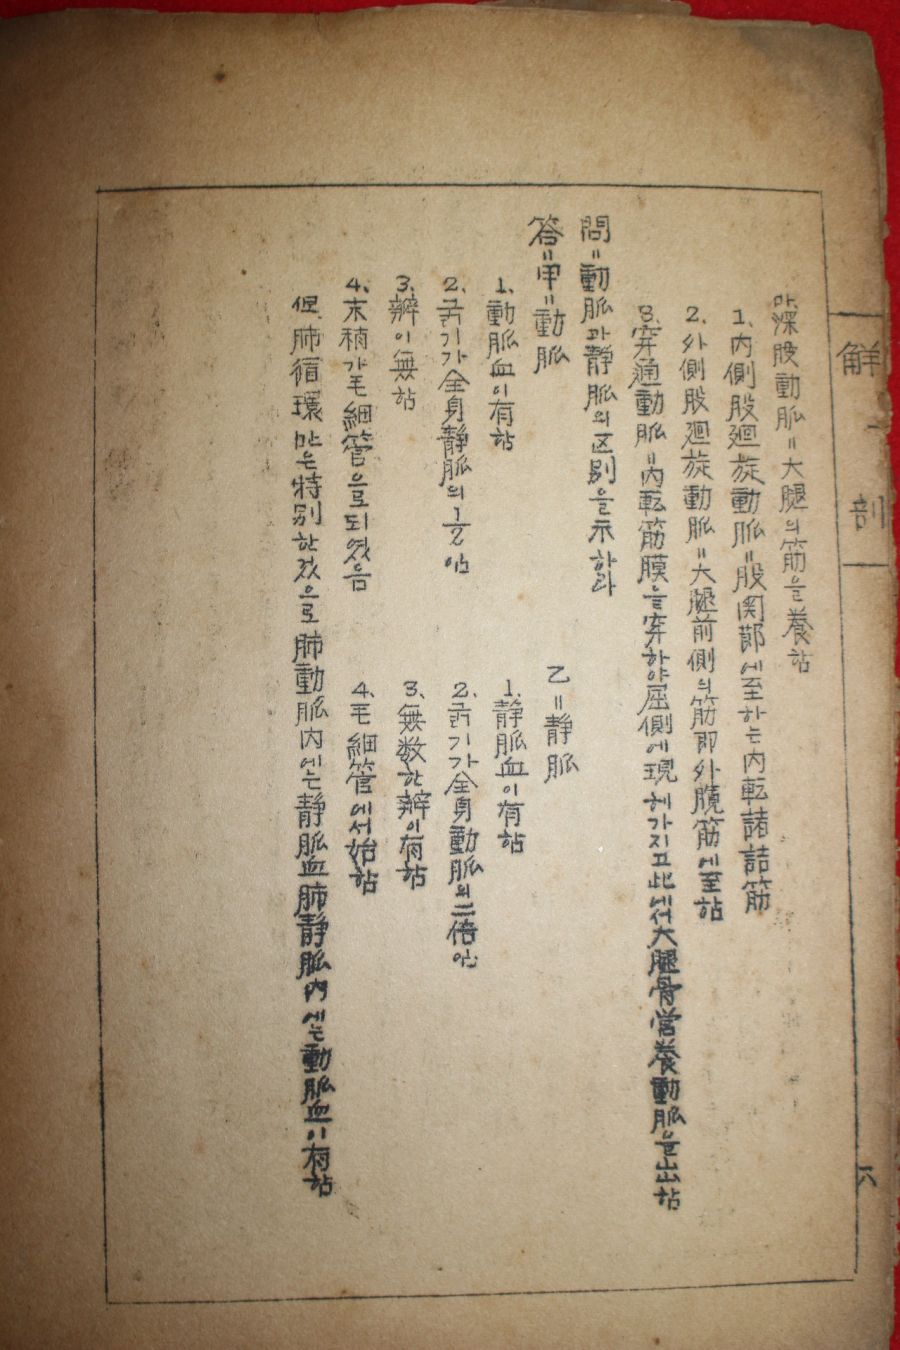 解剖
六
마.深股動脈=大腿의筋을養함
1.内側股廻旋動脈=股関節에至하는内転諸詰筋
2.外側股廻旋動脈=大腿前側의筋即外臗筋에至함
3.穿通動脈=内転筋膜을穿하야屈側에現해가지고此에서大腿骨営養動脈을出함
問=動脈과静脈의区別을示하라
答=甲=動脈
1.動脈血이有함
2.굵기가全身静脈의1/2임
3.瓣이無함
4.末稍가毛細管으로되였음
乙=静脈
1.静脈血이有함
2.굵기가全身動脈의二倍임
3.無数한瓣이有함
4.毛細管에서始함
但.肺循環만은特別한것으로肺動脈内에는静脈血肺静脈内에는動脈血이有함